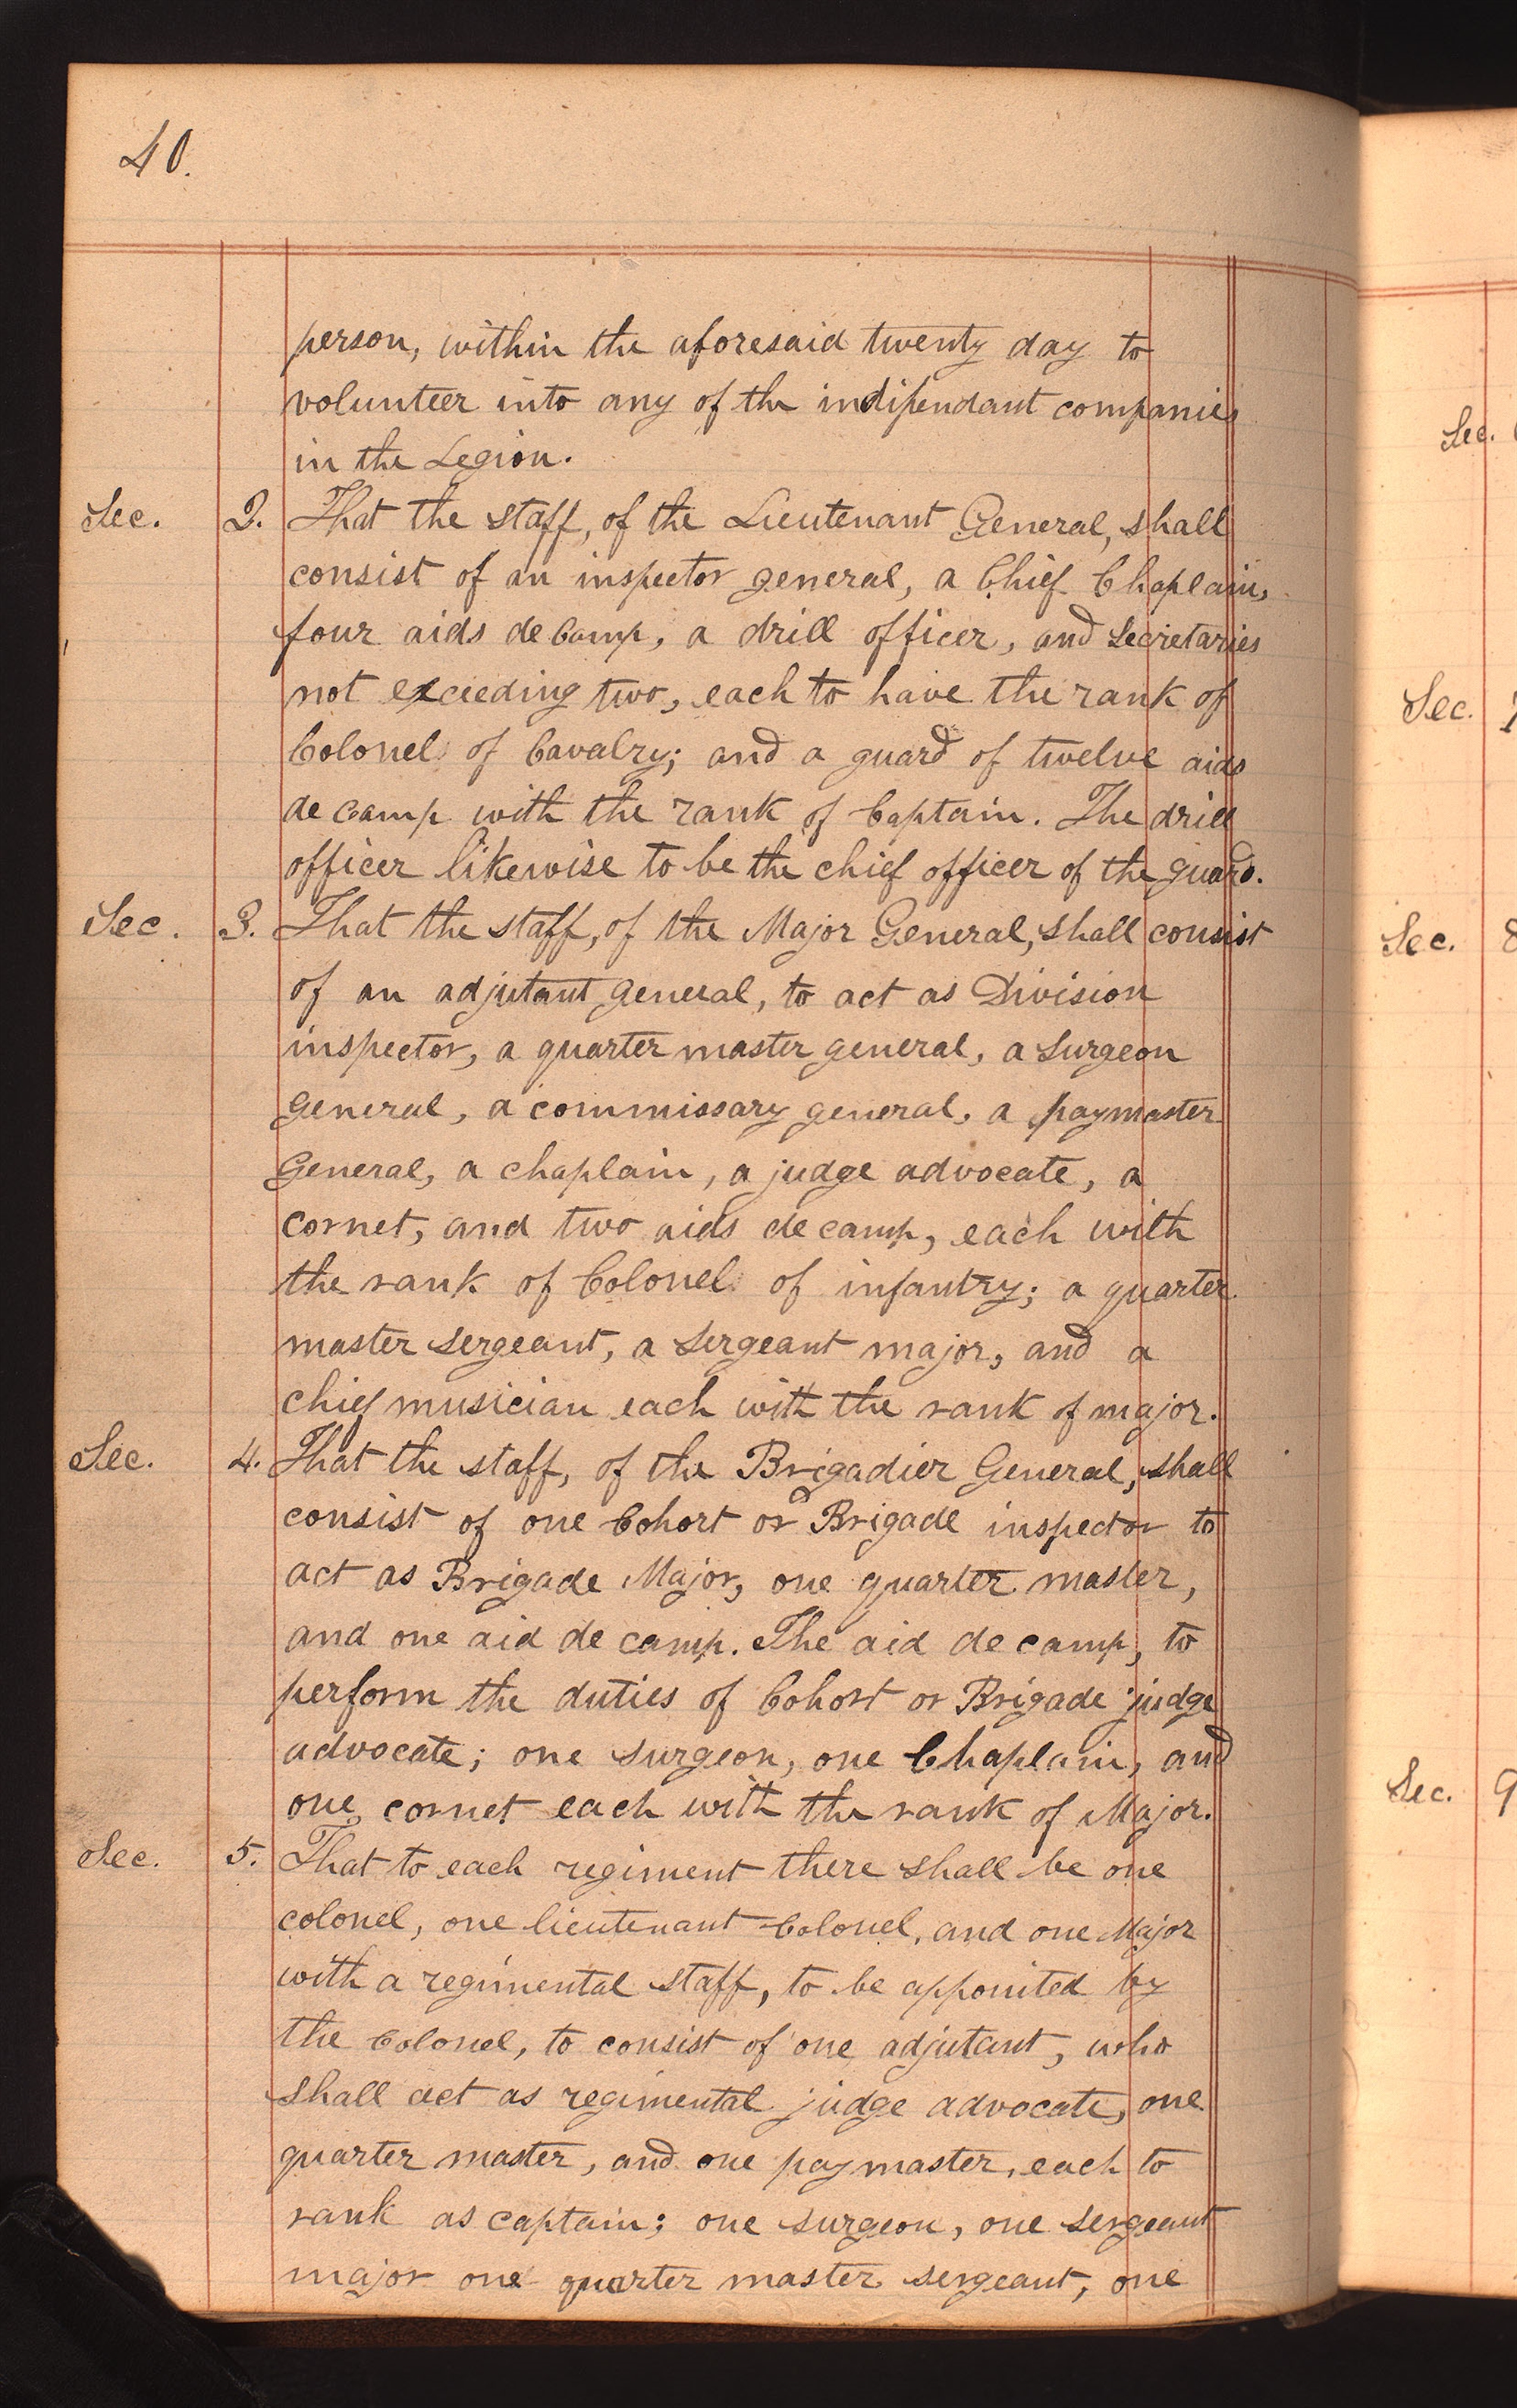 40.
person, within the aforesaid twenty day to
volunteer into any of the indipendant companies
in the Legion.
Sec. 2. That the staff, of the Lieutenant General, shall
consist of an inspector general, a Chief Chaplain,
four aids de Camp, a drill officer, and Secretaries
not exceeding two, each to have the rank of
Colonel of Cavalry; and a guard of twelve aids
de camp with the rank of Captain. The drill
officer likewise to be the chief officer of the guard.
Sec. 3. That the staff, of the Major General, shall consist
of an adjutant general, to act as Division
inspector, a quarter master general, a surgeon
general, a commissary general, a paymaster
General, a chaplain, a judge advocate, a
cornet, and two aids de camp, each with
the rank of Colonel of infantry; a quarter
master sergeant, a sergeant major, and a
chief musician each with the rank of major.
Sec. 4. That the staff, of the Brigadier General, shall
consist of one Cohort or Brigade inspector to
act as Brigade Major, one quarter master,
and one aid de camp. The aid de camp, to
perform the duties of Cohort or Brigade judge
advocate; one surgeon, one Chaplain, and
one cornet each with the rank of Major.
Sec. 5. That to each regiment there shall be one
colonel, one lieutenant Colonel, and one Major
with a regimental staff, to be appointed by
the Colonel, to consist of one adjutant, who
shall act as regimental judge advocate, one
quarter master, and one paymaster, each to
rank as captain; one surgeon, one sergeant
major one quarter master sergeant, one
Sec.
Sec.
Sec. 8
Sec. 9